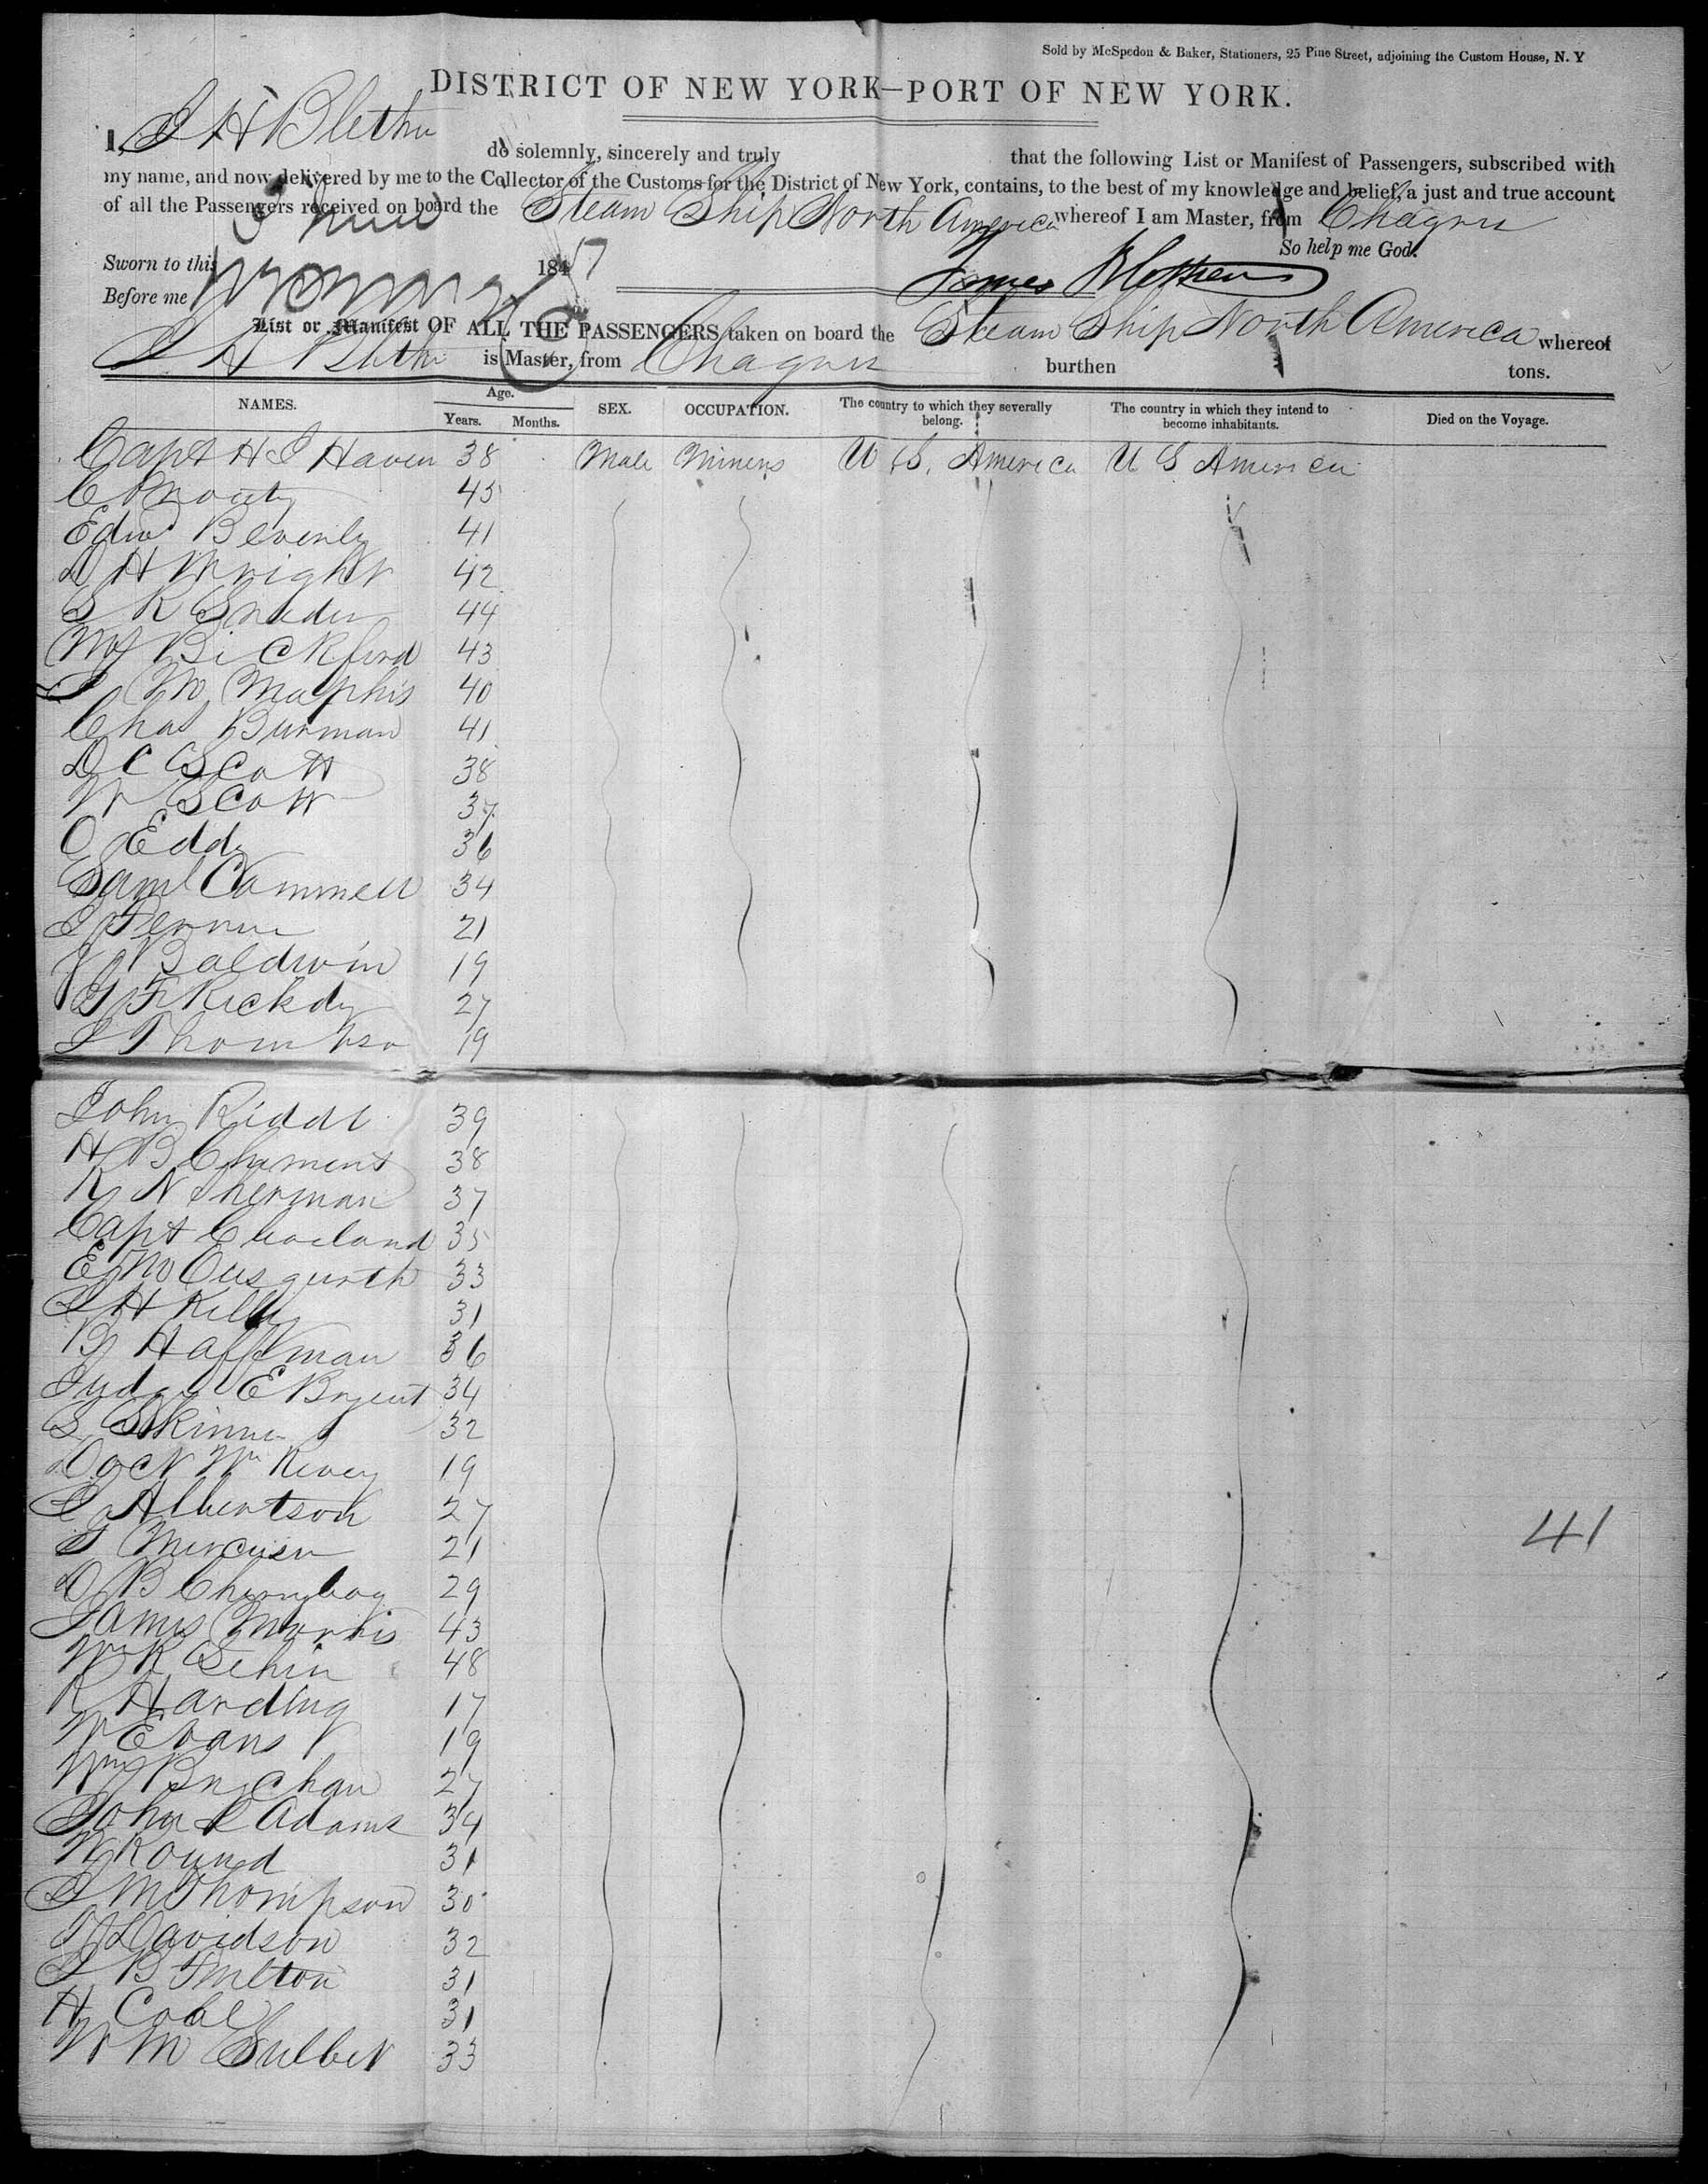 Sold by McSpedon & Baker, Stationers, 25 Pine Street, adjoining the Custom House, N. Y
DISTRICT OF NEW YORK—PORT OF NEW YORK.
I, J H Blethen do solemnly, sincerely and truly that the following List or Manifest of Passengers, subscribed with
my name, and now delivered by me to the Collector of the Customs for the District of New York, contains, to the best of my knowledge and belief, a just and true account
of all the Passengers received on board the Steam Ship North America whereof I am Master, from Chagres
So help me God.
Sworn to this 184
Before me
James Blethen
List or Manifest OF ALL THE PASSENGERS taken on board the Steam Ship North America whereof
J H Blethen is Master, from Chagres burthen tons.
NAMES. Age. Years. Months. SEX. OCCUPATION. The country to which they severally belong. The country in which they intend to become inhabitants. Died on the Voyage.
Capt H J Haven 38 Male Miners U S. America U S America
45
Edwd Beverly 41
D H Wright 42
S R Sneden 44
Bickford 43
J M Maphis 40
Chas Burman 41
D C Scott 38
W Scott 37
O Eddy 36
Saml Cammell 34
J 21
J Baldwin 19
27
J Thompson 19
John Riddl 39
H B 38
R N Sherman 37
Capt Cleveland 35
E M 33
J H Kelly 31
B Haffman 36
Judge E Bryent 34
S Skinner 32
Doct Wm 19
J Albertson 27
21
D B 29
James Morris 43
Wm R 48
R Harding 17
W Evans 19
Wm 27
John L Adams 34
W Round 31
J M Thompson 30
Davidson 32
J B 31
H Coal 31
W M 33
41